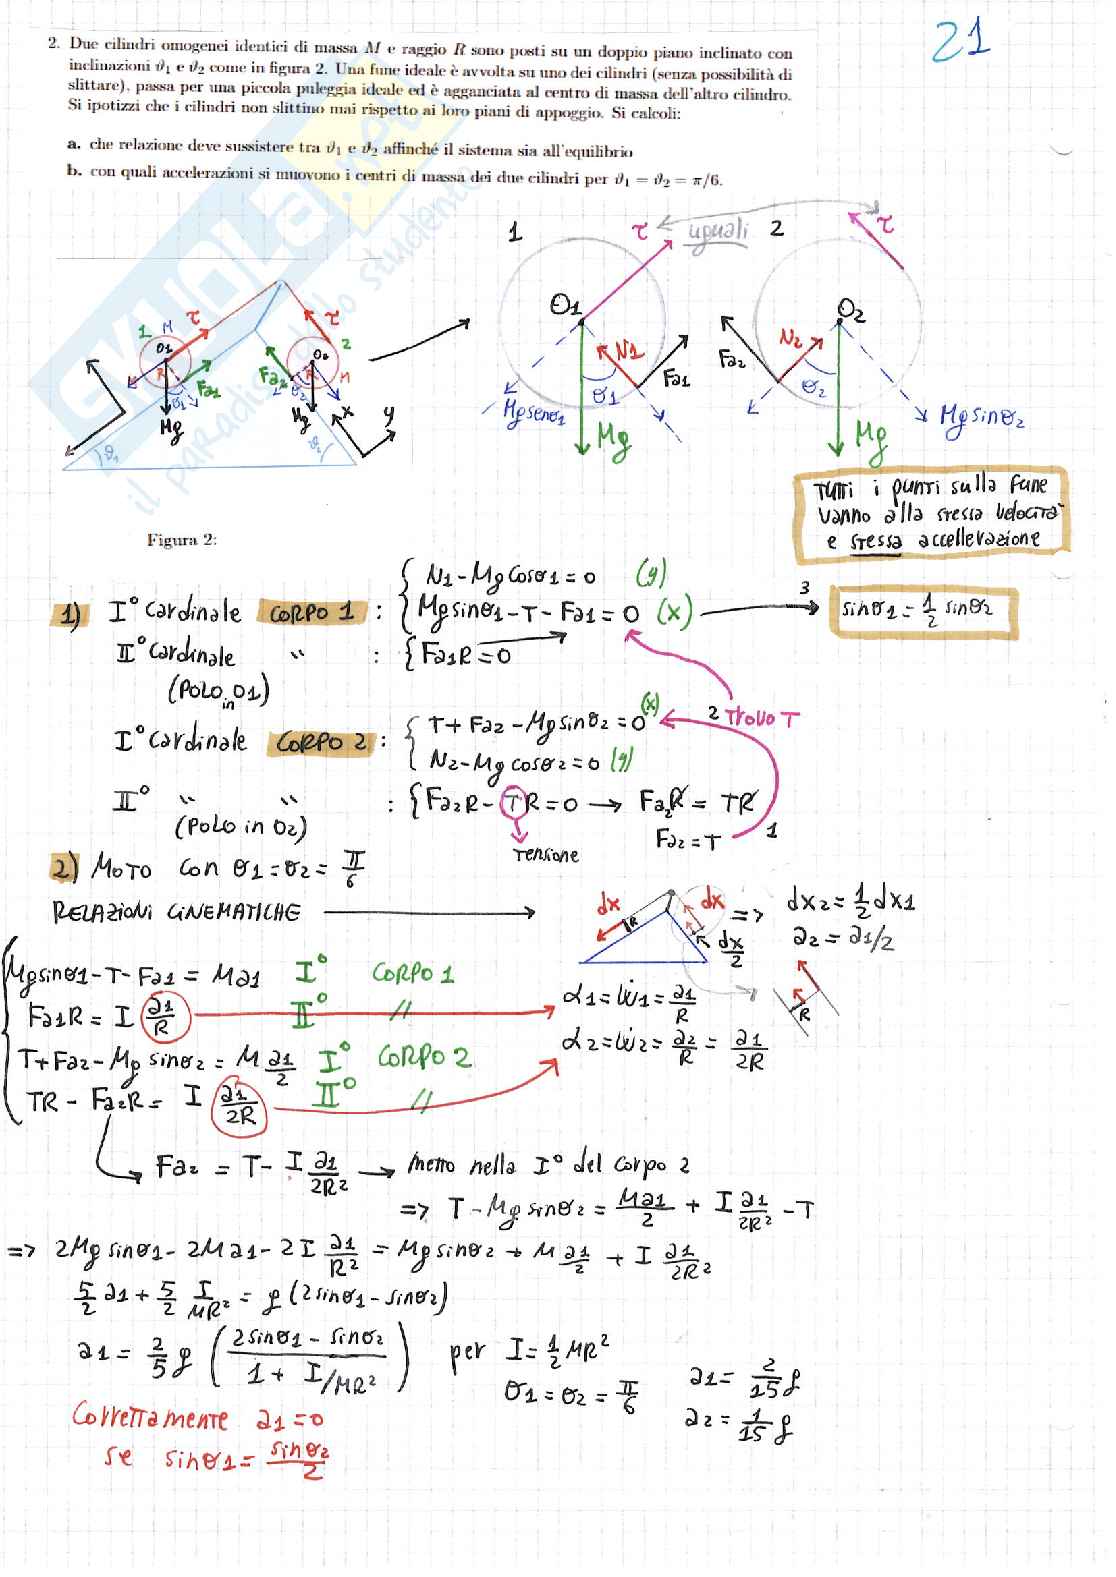 21
2. Due cilindri omogenei identici di massa M e raggio R sono posti su un doppio piano inclinato con
inclinazioni ϑ1 e ϑ2 come in figura 2. Una fune ideale è avvolta su uno dei cilindri (senza possibilità di
slittare), passa per una piccola puleggia ideale ed è agganciata al centro di massa dell'altro cilindro.
Si ipotizzi che i cilindri non slittino mai rispetto ai loro piani di appoggio. Si calcoli:
a. che relazione deve sussistere tra ϑ1 e ϑ2 affinché il sistema sia all'equilibrio
b. con quali accelerazioni si muovono i centri di massa dei due cilindri per ϑ1 = ϑ2 = π/6.
SKUOLA.net
il paradiso dello studente
1 τ uguali 2 τ
θ1 N1 Fa1 σ1 Mgsenσ1 Mg
θ2 N2 Fa2 σ2 Mgsinσ2 Mg
1 M τ O1 R Fa1 σ1 Mg ϑ1
τ 2 O2 Fa2 R σ2 M Mg x y ϑ2
TUTTI i punti sulla fune
vanno alla stessa velocità
e stessa accellerazione
Figura 2:
1) I° cardinale CORPO 1 : { N1 - Mg cosσ1 = 0 (y)
Mg sinσ1 - T - Fa1 = 0 (x) 3 sinσ1 = 1/2 sinσ2
II° cardinale " : { Fa1R = 0
(POLO in O1)
I° cardinale CORPO 2 : { T + Fa2 - Mg sinσ2 = 0 (x) 2 Trovo T
N2 - Mg cosσ2 = 0 (y)
II° " " : { Fa2R - TR = 0 → Fa2R = TR
(POLO in O2) Fa2 = T 1
Tensione
2) MOTO con σ1 = σ2 = π/6
RELAZIONI CINEMATICHE → dx R dx dx/2 => dx2 = 1/2 dx1
a2 = a1/2
R
Mg sinσ1 - T - Fa1 = Ma1 I° CORPO 1
Fa1R = I a1/R II° // α1 = ω̇1 = a1/R
T + Fa2 - Mg sinσ2 = M a1/2 I° CORPO 2 α2 = ω̇2 = a2/R = a1/2R
TR - Fa2R = I a1/2R II° //
Fa2 = T - I a1/2R² → metto nella I° del corpo 2
=> T - Mg sinσ2 = Ma1/2 + I a1/2R² - T
=> 2Mg sinσ1 - 2Ma1 - 2I a1/R² = Mg sinσ2 + M a1/2 + I a1/2R²
5/2 a1 + 5/2 I/MR² = g (2sinσ1 - sinσ2)
a1 = 2/5 g ( 2sinσ1 - sinσ2 / 1 + I/MR² ) per I = 1/2 MR²
σ1 = σ2 = π/6
a1 = 2/15 g
a2 = 1/15 g
Correttamente a1 = 0
se sinσ1 = sinσ2/2